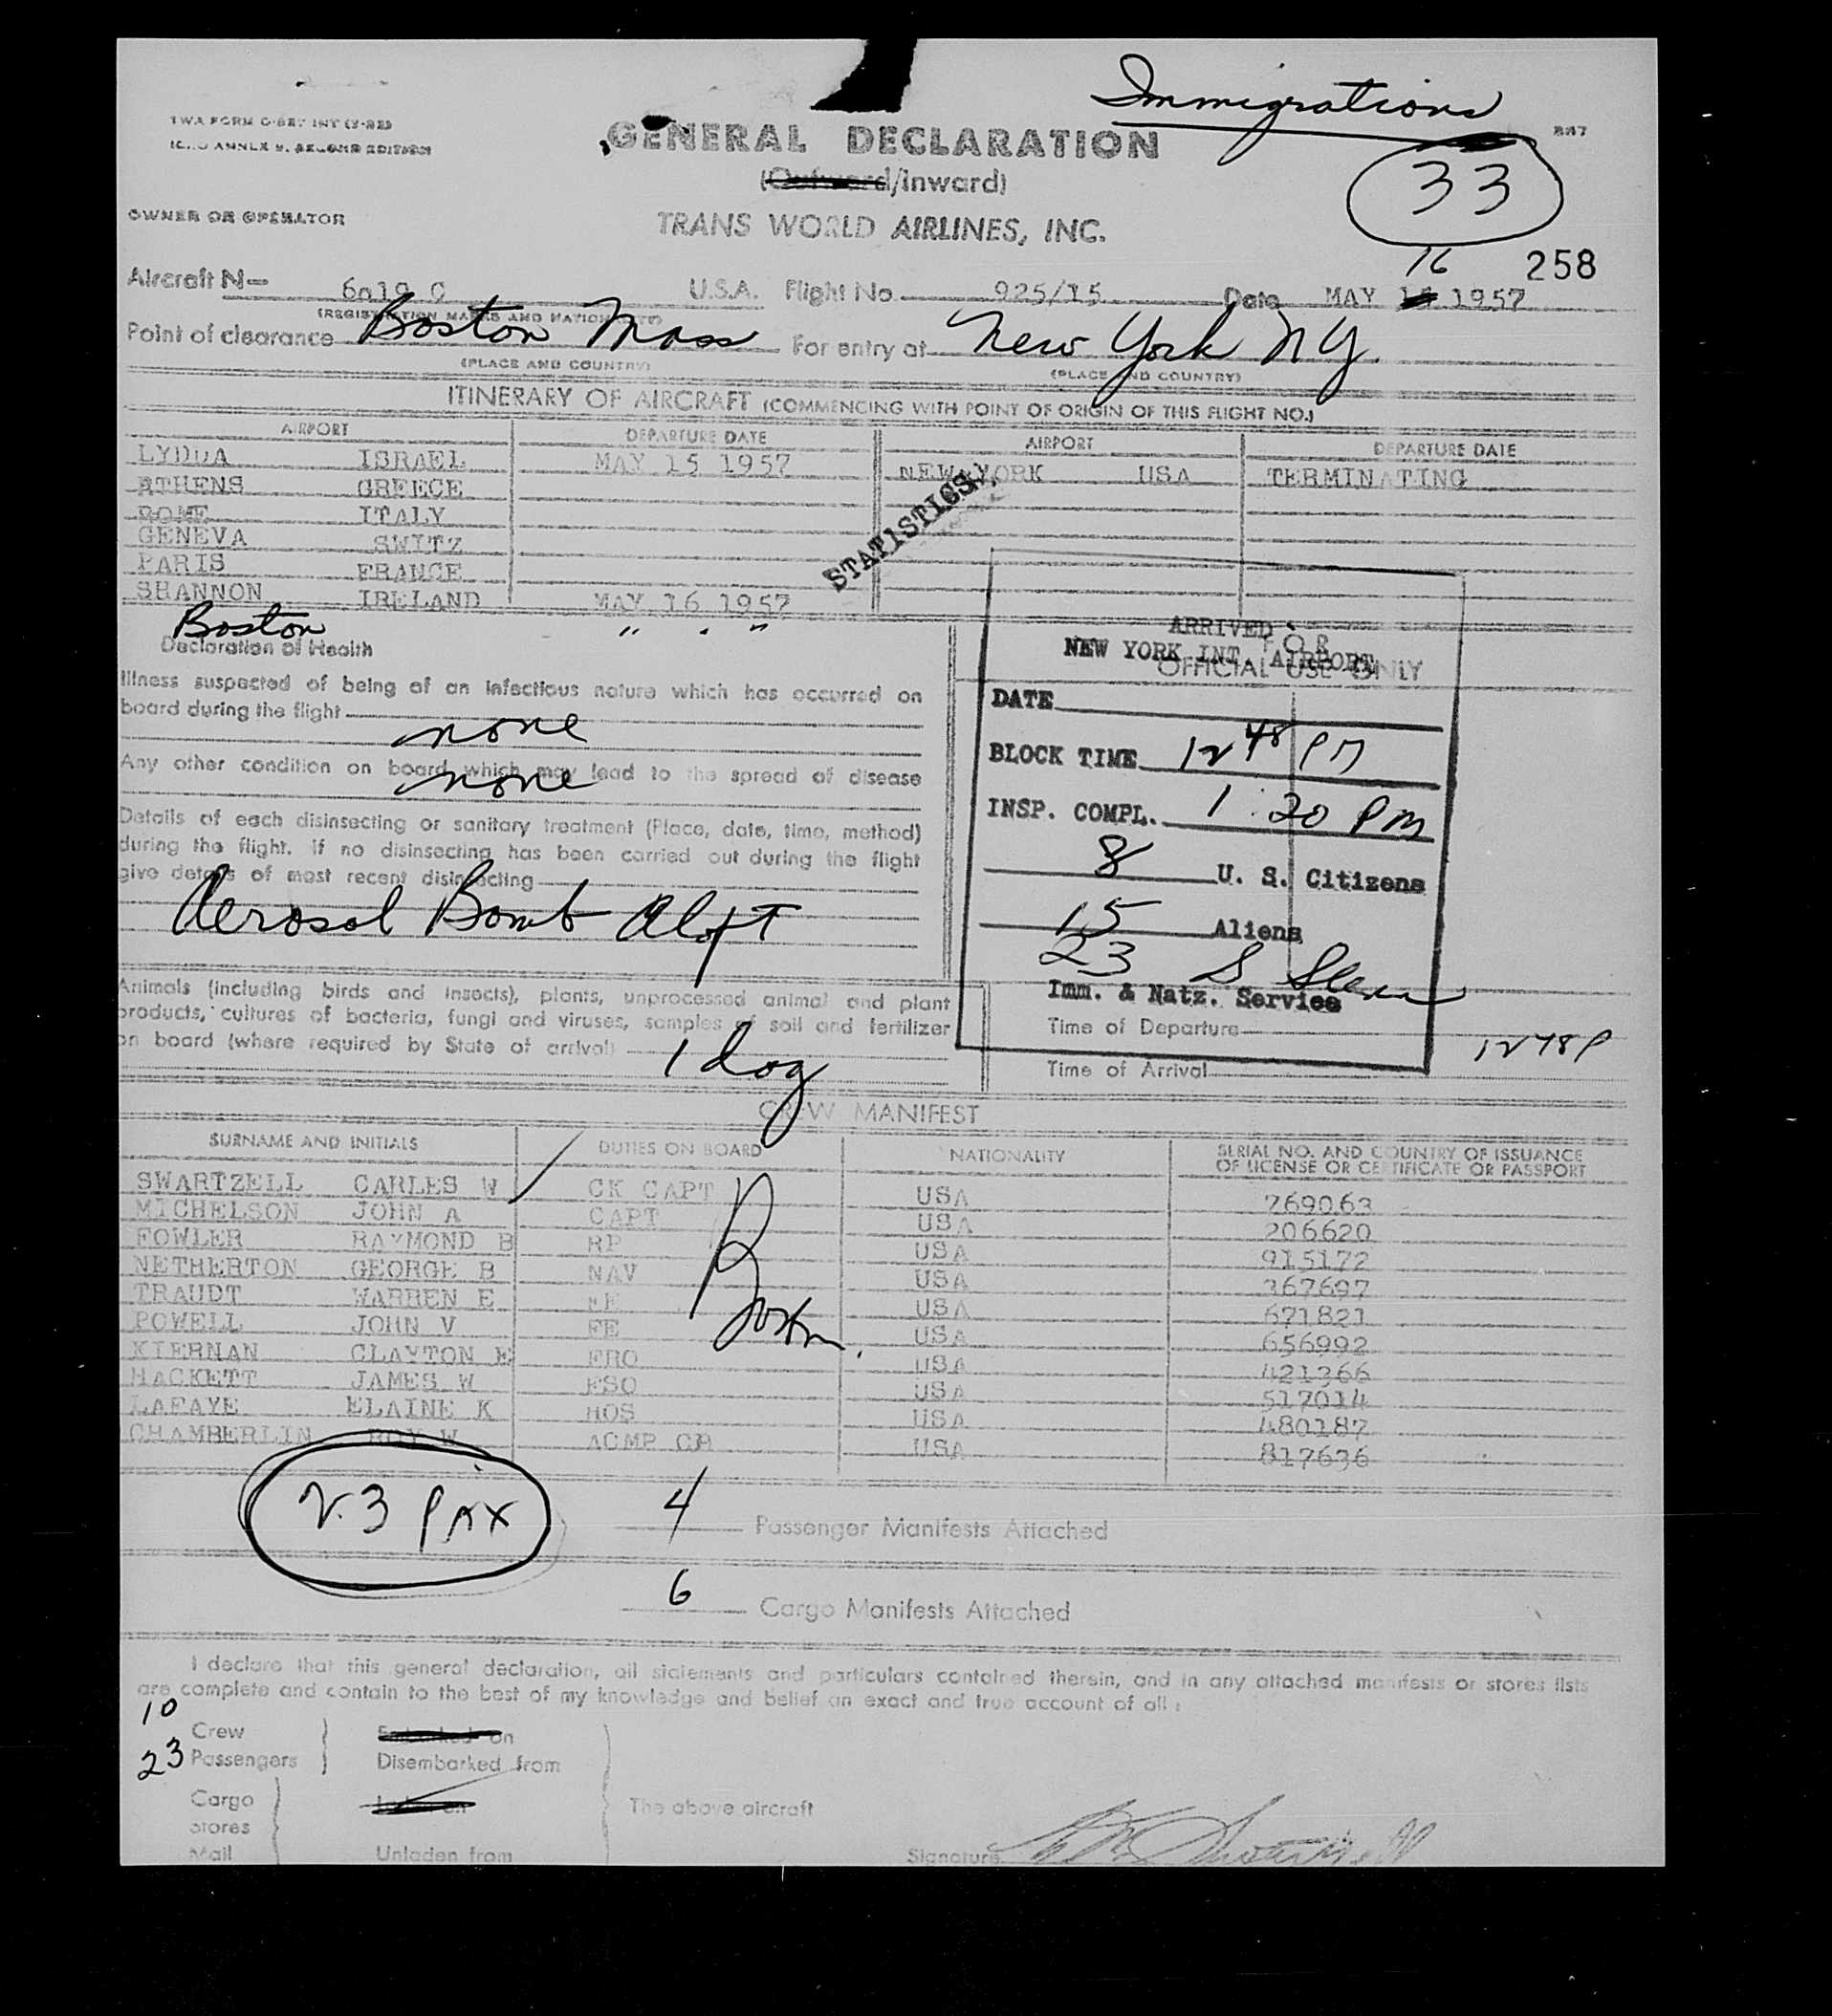 Immigrations
TWA FORM
887
GENERAL DECLARATION
33
(Outward/Inward)
OWNER OR OPERATOR
TRANS WORLD AIRLINES, INC.
16 258
Aircraft N— 6019 C U.S.A. Flight No. 925/15 Date MAY 1957
(REGISTRATION MARKS AND NATIONALITY)
Point of clearance Boston Mass For entry at New York NY.
(PLACE AND COUNTRY) (PLACE AND COUNTRY)
ITINERARY OF AIRCRAFT (COMMENCING WITH POINT OF ORIGIN OF THIS FLIGHT NO.)
AIRPORT DEPARTURE DATE AIRPORT DEPARTURE DATE
LYDDA ISRAEL MAY 15 1957 NEW YORK USA TERMINATING
ATHENS GREECE
ROME ITALY
GENEVA SWITZ
PARIS FRANCE
SHANNON IRELAND MAY 16 1957
STATISTICS
Boston " " "
Declaration of Health
Illness suspected of being of an infectious nature which has occurred on
board during the flight
none
Any other condition on board which may lead to the spread of disease
none
Details of each disinsecting or sanitary treatment (Place, date, time, method)
during the flight. If no disinsecting has been carried out during the flight
give details of most recent disinsecting
Aerosol Bomb Aloft
Animals (including birds and insects), plants, unprocessed animal and plant
products, cultures of bacteria, fungi and viruses, samples of soil and fertilizer
on board (where required by State of arrival)
1 dog
FOR
OFFICIAL USE ONLY
ARRIVED
NEW YORK INT. AIRPORT
DATE
BLOCK TIME 12 48 PM
INSP. COMPL. 1:20 PM
8 U. S. Citizens
15 Aliens
23 S
Imm. & Natz. Service
Time of Departure
1248P
Time of Arrival
CREW MANIFEST
SURNAME AND INITIALS DUTIES ON BOARD NATIONALITY SERIAL NO. AND COUNTRY OF ISSUANCE
OF LICENSE OR CERTIFICATE OR PASSPORT
SWARTZELL CARLES W CK CAPT USA 769063
MICHELSON JOHN A CAPT USA 206620
FOWLER RAYMOND B RP USA 915172
NETHERTON GEORGE B NAV USA 367697
TRAUDT WARREN E FE USA 671821
POWELL JOHN V FE USA 656992
KIERNAN CLAYTON E FRO USA 421366
HACKETT JAMES W FSO USA 517014
LAFAYE ELAINE K HOS USA 480187
CHAMBERLIN ROY W ACMP CR USA 817636
Boston.
23 PAX
4 Passenger Manifests Attached
6 Cargo Manifests Attached
I declare that this general declaration, all statements and particulars contained therein, and in any attached manifests or stores lists
are complete and contain to the best of my knowledge and belief an exact and true account of all :
10 Crew Embarked on
23 Passengers Disembarked from
Cargo Laden on The above aircraft
Stores
Mail Unladen from Signature